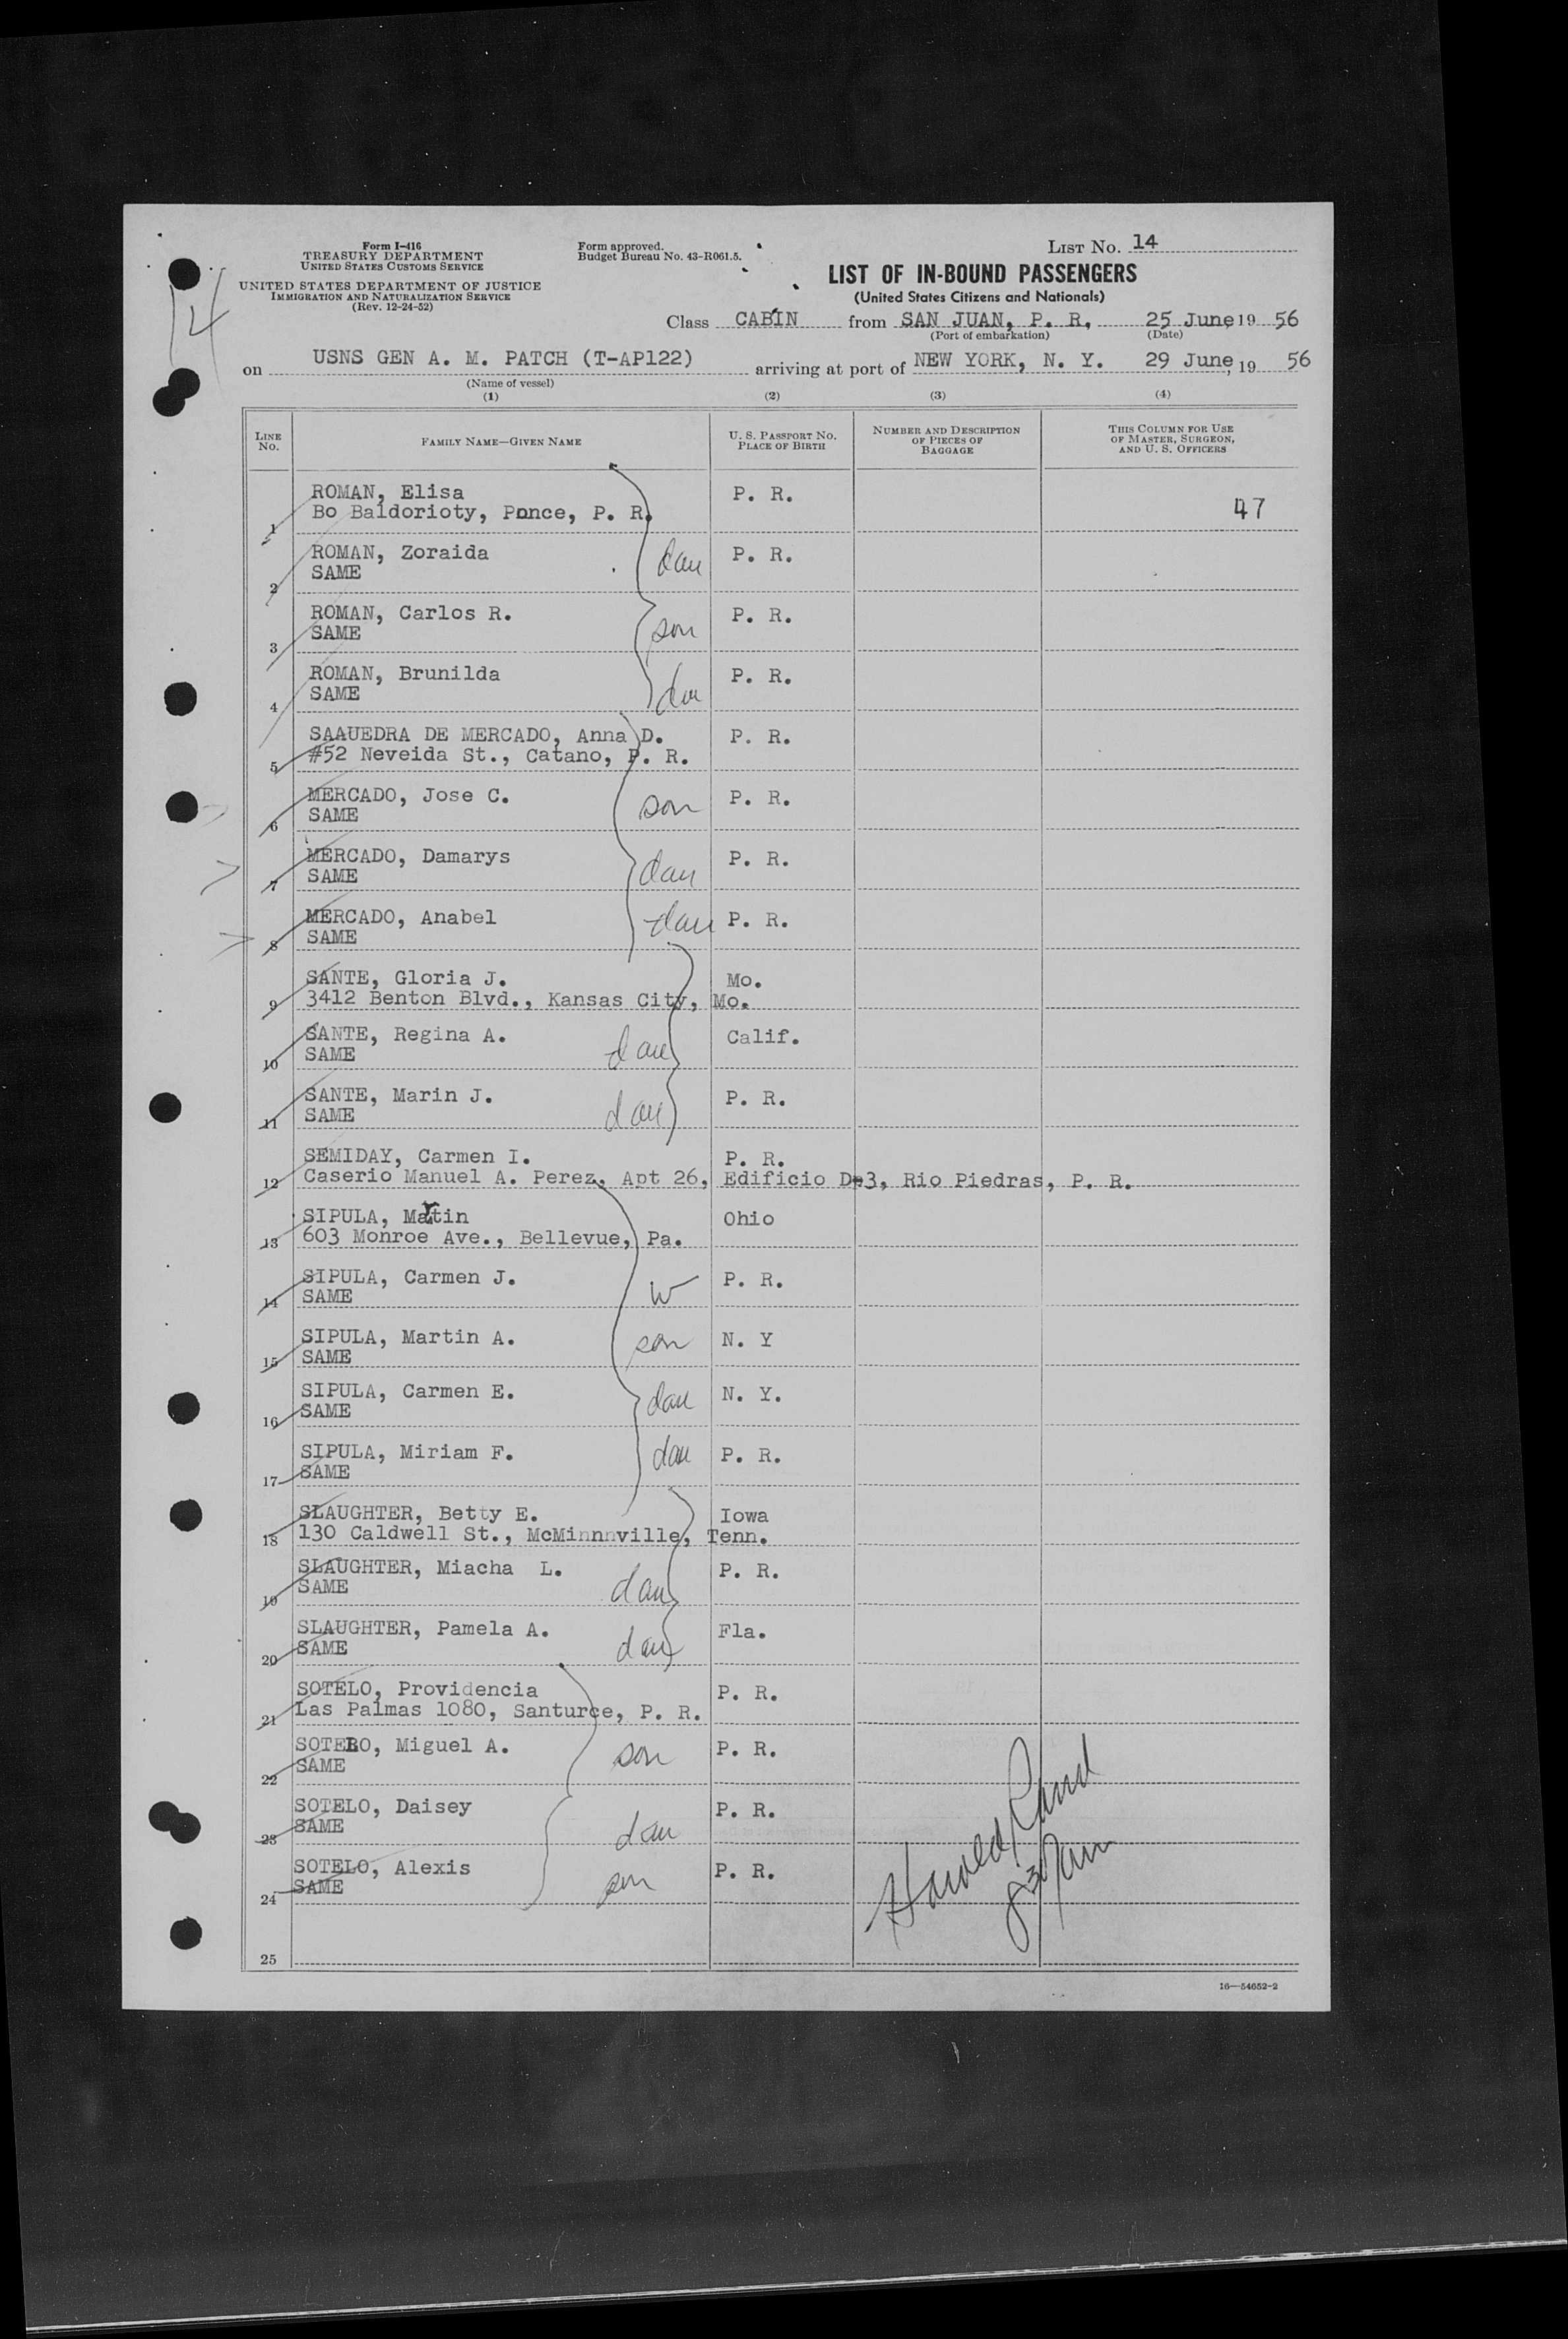 Form I-416
TREASURY DEPARTMENT
UNITED STATES CUSTOMS SERVICE
UNITED STATES DEPARTMENT OF JUSTICE
IMMIGRATION AND NATURALIZATION SERVICE
(Rev. 12-24-52)
14
Form approved.
Budget Bureau No. 43-R061.5.
LIST No. 14
LIST OF IN-BOUND PASSENGERS
(United States Citizens and Nationals)
Class CABIN from SAN JUAN, P. R. 25 June 19 56
(Port of embarkation) (Date)
on USNS GEN A. M. PATCH (T-AP122) arriving at port of NEW YORK, N. Y. 29 June, 19 56
(Name of vessel)
(1) (2) (3) (4)
LINE No. FAMILY NAME—GIVEN NAME U. S. PASSPORT No. PLACE OF BIRTH NUMBER AND DESCRIPTION OF PIECES OF BAGGAGE THIS COLUMN FOR USE OF MASTER, SURGEON, AND U. S. OFFICERS
ROMAN, Elisa P. R.
1 Bo Baldorioty, Ponce, P. R. 47
ROMAN, Zoraida dau P. R.
2 SAME
ROMAN, Carlos R. son P. R.
3 SAME
ROMAN, Brunilda dau P. R.
4 SAME
SAAUEDRA DE MERCADO, Anna D. P. R.
5 #52 Neveida St., Catano, P. R.
MERCADO, Jose C. son P. R.
6 SAME
MERCADO, Damarys dau P. R.
7 SAME
MERCADO, Anabel dau P. R.
8 SAME
SANTE, Gloria J. Mo.
9 3412 Benton Blvd., Kansas City, Mo.
SANTE, Regina A. dau Calif.
10 SAME
SANTE, Marin J. dau P. R.
11 SAME
SEMIDAY, Carmen I. P. R.
12 Caserio Manuel A. Perez, Apt 26, Edificio D-3, Rio Piedras, P. R.
SIPULA, Martin Ohio
13 603 Monroe Ave., Bellevue, Pa.
SIPULA, Carmen J. W P. R.
14 SAME
SIPULA, Martin A. son N. Y
15 SAME
SIPULA, Carmen E. dau N. Y.
16 SAME
SIPULA, Miriam F. dau P. R.
17 SAME
SLAUGHTER, Betty E. Iowa
18 130 Caldwell St., McMinnnville, Tenn.
SLAUGHTER, Miacha L. dau P. R.
19 SAME
SLAUGHTER, Pamela A. dau Fla.
20 SAME
SOTELO, Providencia P. R.
21 Las Palmas 1080, Santurce, P. R.
SOTELO, Miguel A. son P. R.
22 SAME
SOTELO, Daisey dau P. R.
23 SAME
SOTELO, Alexis son P. R.
24 SAME
Harold
25
16—54652-2